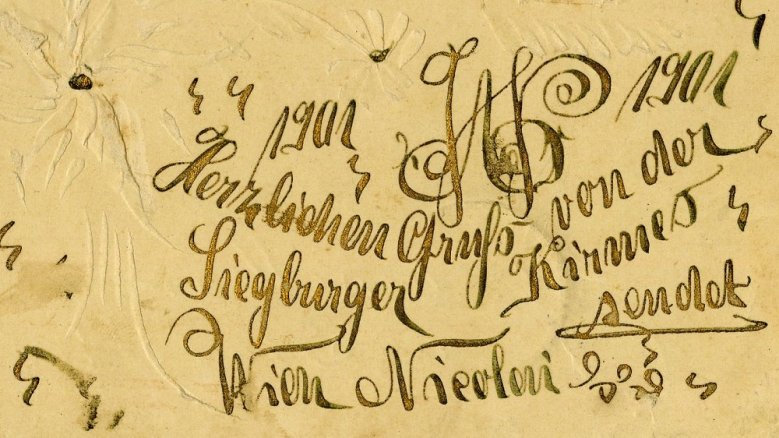 1901 1901
Herzlichen Gruſs von der
Siegburger Kirmes
sendet
Nicolai